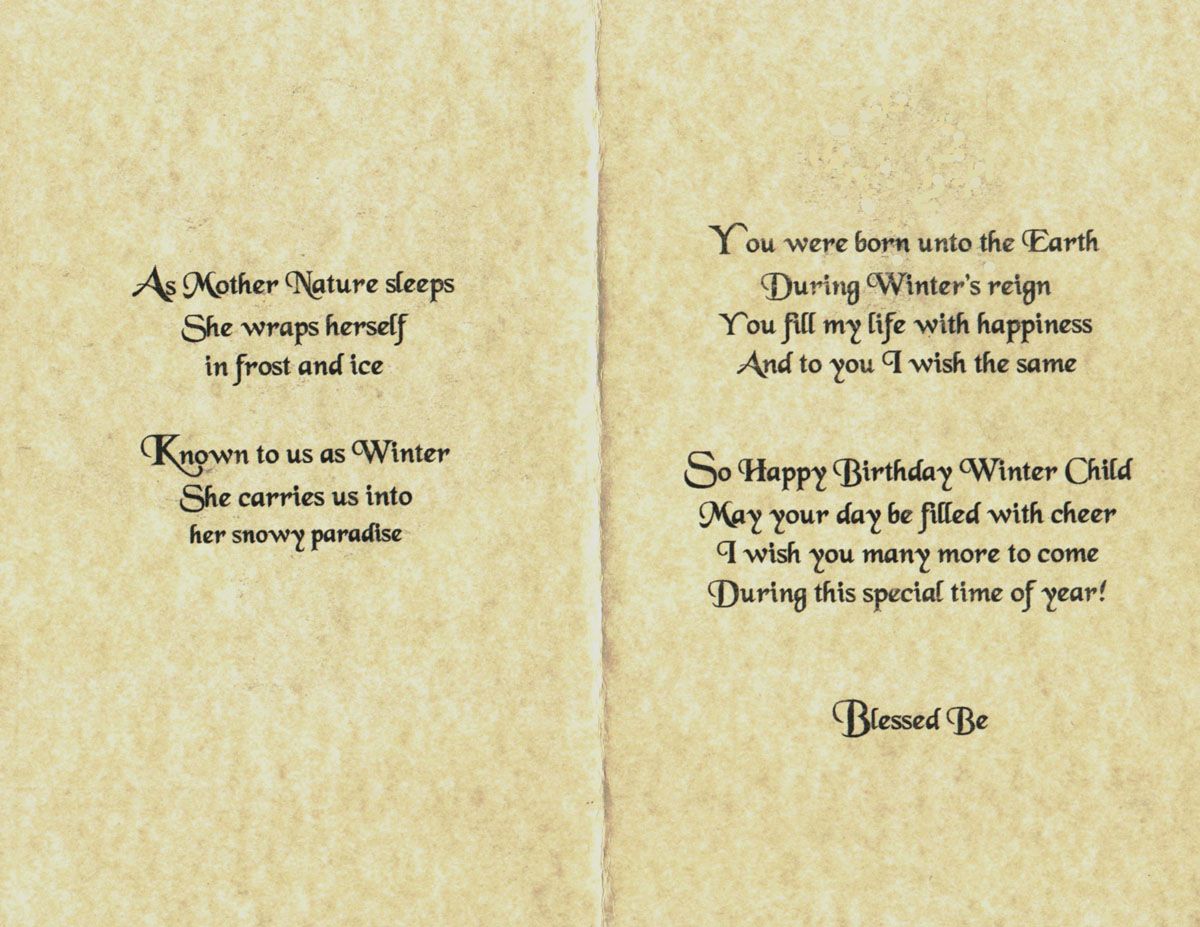 As Mother Nature sleeps
She wraps herself
in frost and ice
Known to us as Winter
She carries us into
her snowy paradise
You were born unto the Earth
During Winter's reign
You fill my life with happiness
And to you I wish the same
So Happy Birthday Winter Child
May your day be filled with cheer
I wish you many more to come
During this special time of year!
Blessed Be